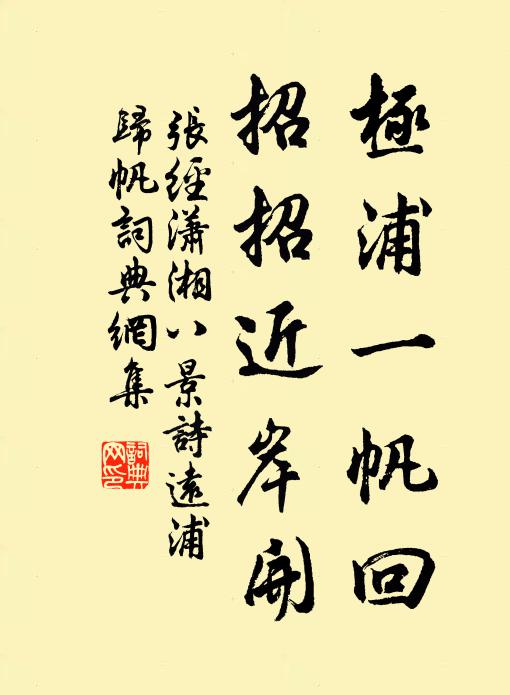 極浦一帆回
招招近岸開
張經瀟湘八景詩遠浦
歸帆詞典網集
詞典
网印